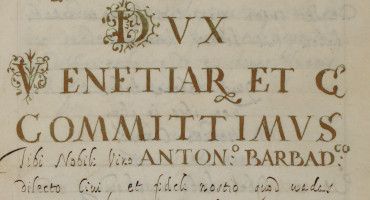 DVX
VENETIAR ET C
COMMITTIMVS
Tibi Nobili Viro ANTON.º BARBAD.CO
dilecto Ciui, et fideli nostro quod uadas